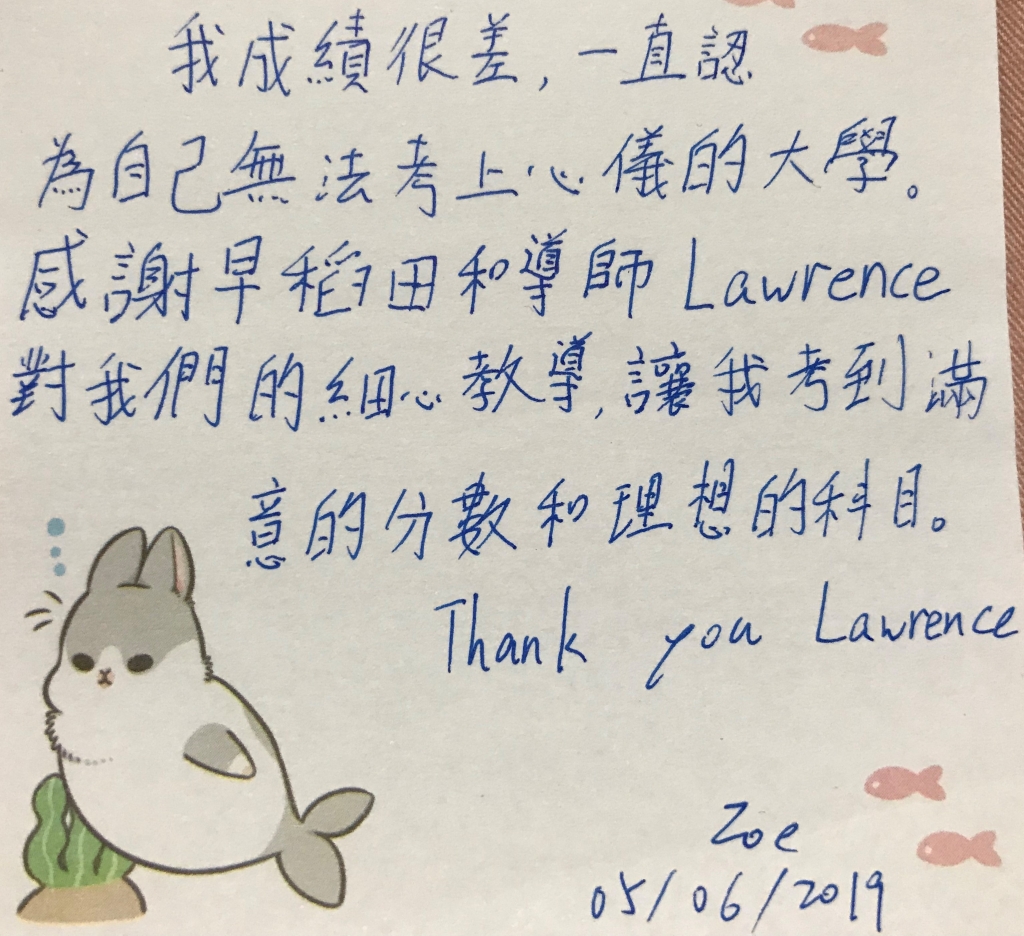 我成績很差,一直認
為自己無法考上心儀的大學。
感謝早稻田和導師Lawrence
對我們的細心教導,讓我考到滿
意的分數和理想的科目。
Thank you Lawrence
Zoe
05/06/2019